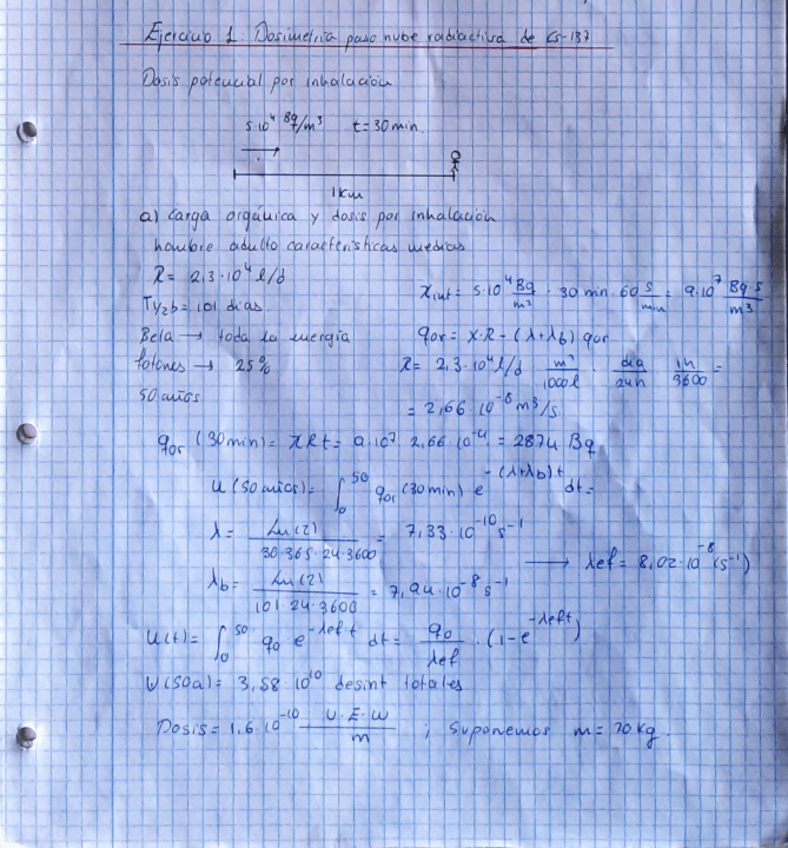 Ejercicio 1: Dosimetría paso nube radiactiva de Cs-137
Dosis potencial por inhalación
5·10⁴ Bq/m³ t=30min.
1Km
a) Carga orgánica y dosis por inhalación
hombre adulto características medias
R= 2,3·10⁴ l/d
T₁/₂b= 101 días.
Beta → toda la energía
fotones → 25%
50 años
χint = 5·10⁴ Bq/m³ · 30 min · 60 s/min = 9·10⁷ Bq·s/m³
qor = χ·R - (λ+λb) qor
R= 2,3·10⁴ l/d · m³/1000l · dia/24h · 1h/3600 =
= 2,66·10⁻⁸ m³/s
qor (30min)= χRt= 9·10⁷ 2,66·10⁻⁴ = 2874 Bq
U(50 años)= ∫₀⁵⁰ qor(30min) e^-(λ+λb)t dt=
λ= Ln(2)/30·365·24·3600 = 7,33·10⁻¹⁰ s⁻¹
λb= Ln(2)/101·24·3600 = 7,94·10⁻⁸ s⁻¹
→ λef= 8,02·10⁻⁸ (s⁻¹)
U(t)= ∫₀⁵⁰ q₀ e^-λef t dt= q₀/λef · (1-e^-λef t)
U(50a)= 3,58·10¹⁰ desint totales
Dosis= 1,6·10⁻¹⁰ U·E·W/m ; Suponemos m= 70kg.